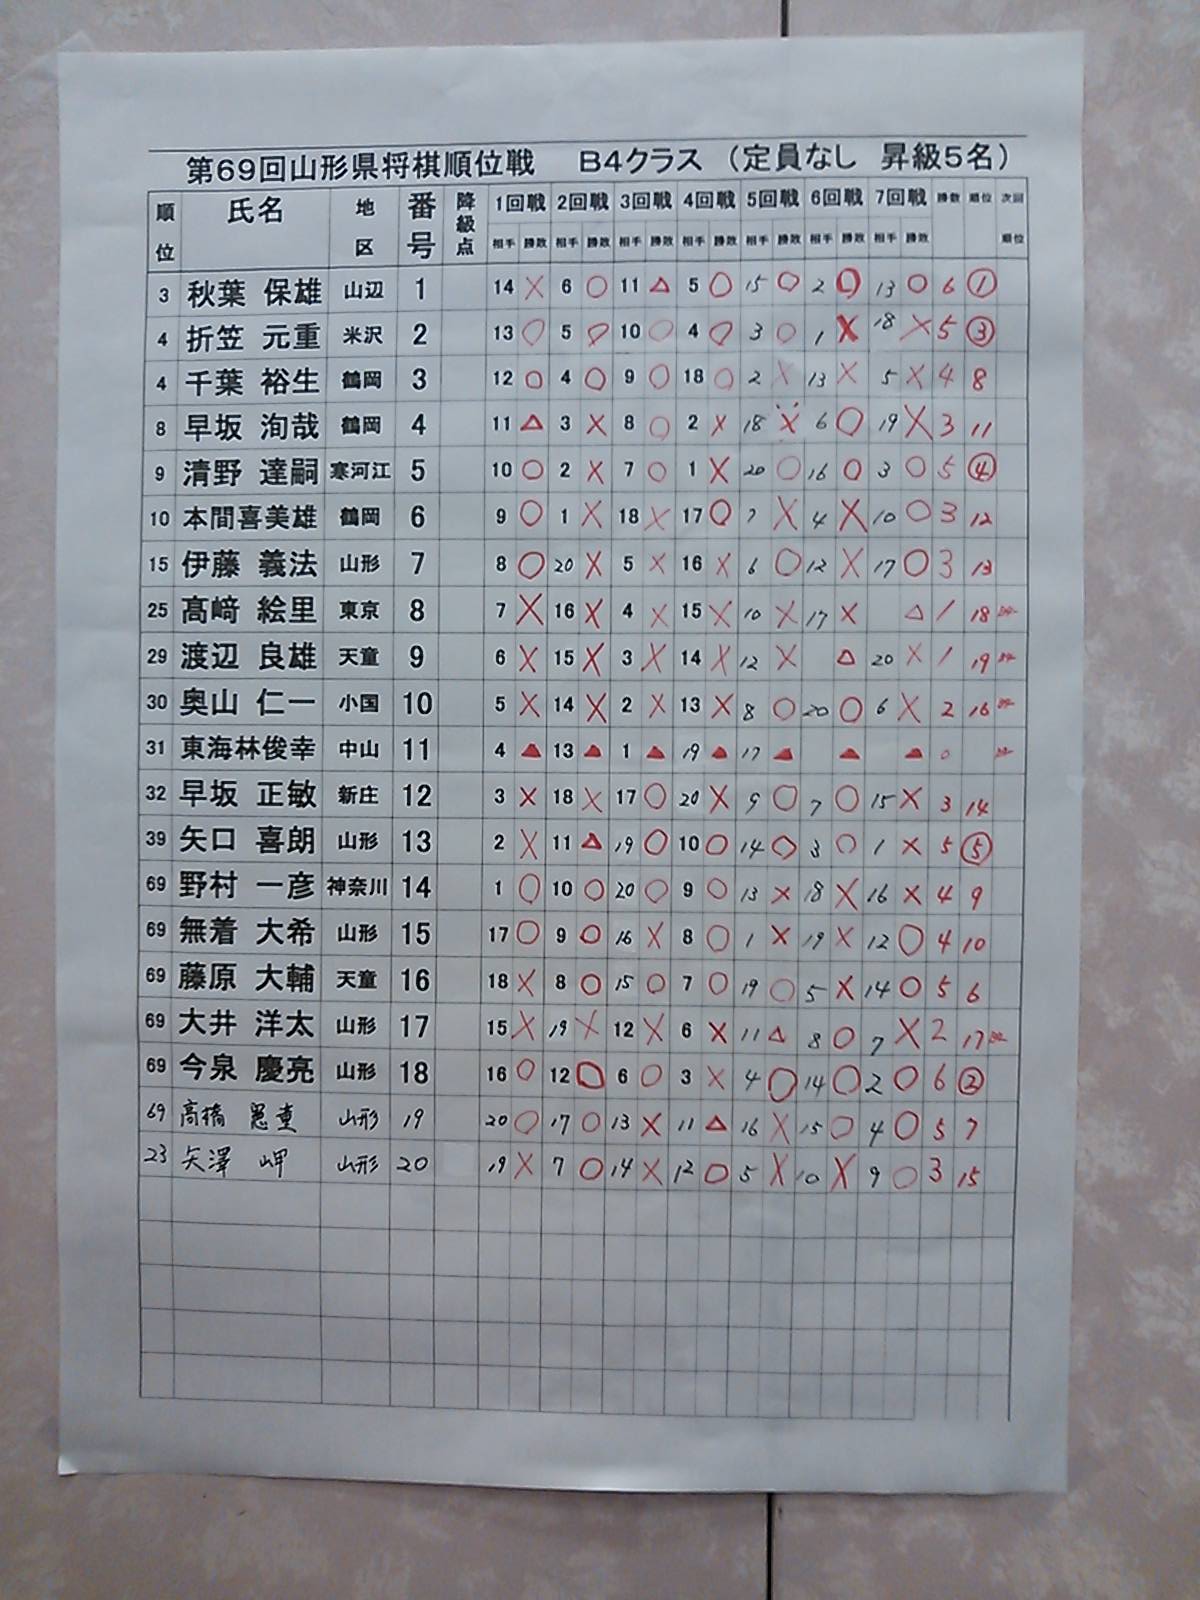 第69回山形県将棋順位戦 B4クラス (定員なし 昇級5名)
順位 氏名 地区 番号 降級点 1回戦 2回戦 3回戦 4回戦 5回戦 6回戦 7回戦 勝数 順位 次回順位
相手 勝敗 相手 勝敗 相手 勝敗 相手 勝敗 相手 勝敗 相手 勝敗 相手 勝敗
3 秋葉 保雄 山辺 1 14 × 6 ○ 11 △ 5 ○ 15 ○ 2 ○ 13 ○ 6 ①
4 折笠 元重 米沢 2 13 ○ 5 ○ 10 ○ 4 ○ 3 ○ 1 × 18 × 5 ③
4 千葉 裕生 鶴岡 3 12 ○ 4 ○ 9 ○ 18 ○ 2 × 13 × 5 × 4 8
8 早坂 洵哉 鶴岡 4 11 △ 3 × 8 ○ 2 × 18 × 6 ○ 19 × 3 11
9 清野 達嗣 寒河江 5 10 ○ 2 × 7 ○ 1 × 20 ○ 16 ○ 3 ○ 5 ④
10 本間喜美雄 鶴岡 6 9 ○ 1 × 18 × 17 ○ 7 × 4 × 10 ○ 3 12
15 伊藤 義法 山形 7 8 ○ 20 × 5 × 16 × 6 ○ 12 × 17 ○ 3 13
25 髙﨑 絵里 東京 8 7 × 16 × 4 × 15 × 10 × 17 × △ 1 18
29 渡辺 良雄 天童 9 6 × 15 × 3 × 14 × 12 × △ 20 × 1 19
30 奥山 仁一 小国 10 5 × 14 × 2 × 13 × 8 ○ 20 ○ 6 × 2 16
31 東海林俊幸 中山 11 4 ▲ 13 ▲ 1 ▲ 19 ▲ 17 ▲ ▲ ▲ 0
32 早坂 正敏 新庄 12 3 × 18 × 17 ○ 20 × 9 ○ 7 ○ 15 × 3 14
39 矢口 喜朗 山形 13 2 × 11 △ 19 ○ 10 ○ 14 ○ 3 ○ 1 × 5 ⑤
69 野村 一彦 神奈川 14 1 ○ 10 ○ 20 ○ 9 ○ 13 × 18 × 16 × 4 9
69 無着 大希 山形 15 17 ○ 9 ○ 16 × 8 ○ 1 × 19 × 12 ○ 4 10
69 藤原 大輔 天童 16 18 × 8 ○ 15 ○ 7 ○ 19 ○ 5 × 14 ○ 5 6
69 大井 洋太 山形 17 15 × 19 × 12 × 6 × 11 △ 8 ○ 7 × 2 17
69 今泉 慶亮 山形 18 16 ○ 12 ○ 6 ○ 3 × 4 ○ 14 ○ 2 ○ 6 ②
69 高橋 山形 19 20 ○ 17 ○ 13 × 11 △ 16 × 15 ○ 4 ○ 5 7
23 矢澤 岬 山形 20 19 × 7 ○ 14 × 12 ○ 5 × 10 × 9 ○ 3 15